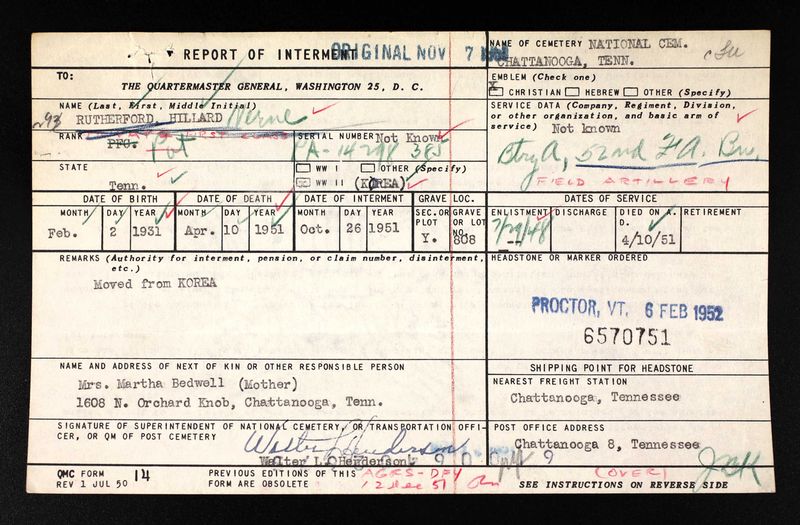 REPORT OF INTERMENT
ORIGINAL NOV 7
TO:
THE QUARTERMASTER GENERAL, WASHINGTON 25, D. C.
NAME OF CEMETERY NATIONAL CEM.
CHATTANOOGA, TENN.
EMBLEM (Check one)
CHRISTIAN HEBREW OTHER (Specify)
NAME (Last, First, Middle Initial)
293 RUTHERFORD, HILLARD Verne
SERVICE DATA (Company, Regiment, Division,
or other organization, and basic arm of
service) Not known
Btry A, 52nd FA. Bn.
FIELD ARTILLERY
RANK
PFC. Pvt
SERIAL NUMBER Not Known
RA-14 298 385
STATE
Tenn.
WW I OTHER (Specify)
WW II (KOREA)
DATE OF BIRTH DATE OF DEATH DATE OF INTERMENT GRAVE LOC. DATES OF SERVICE
MONTH DAY YEAR MONTH DAY YEAR MONTH DAY YEAR SEC. OR PLOT GRAVE OR LOT NO. ENLISTMENT DISCHARGE DIED ON A. D. RETIREMENT
Feb. 2 1931 Apr. 10 1951 Oct. 26 1951 Y. 808 7/29/48 -- 4/10/51
REMARKS (Authority for interment, pension, or claim number, disinterment,
etc.)
Moved from KOREA
HEADSTONE OR MARKER ORDERED
PROCTOR, VT. 6 FEB 1952
6570751
NAME AND ADDRESS OF NEXT OF KIN OR OTHER RESPONSIBLE PERSON
Mrs. Martha Bedwell (Mother)
1608 N. Orchard Knob, Chattanooga, Tenn.
SHIPPING POINT FOR HEADSTONE
NEAREST FREIGHT STATION
Chattanooga, Tennessee
SIGNATURE OF SUPERINTENDENT OF NATIONAL CEMETERY, OR TRANSPORTATION OFFI-
CER, OR QM OF POST CEMETERY
Walter L. Henderson
Walter L. Henderson
POST OFFICE ADDRESS
Chattanooga 8, Tennessee
QMC FORM 14
REV 1 JUL 50
PREVIOUS EDITIONS OF THIS
FORM ARE OBSOLETE
AGES-DPY
12 Dec 51
(OVER)
SEE INSTRUCTIONS ON REVERSE SIDE